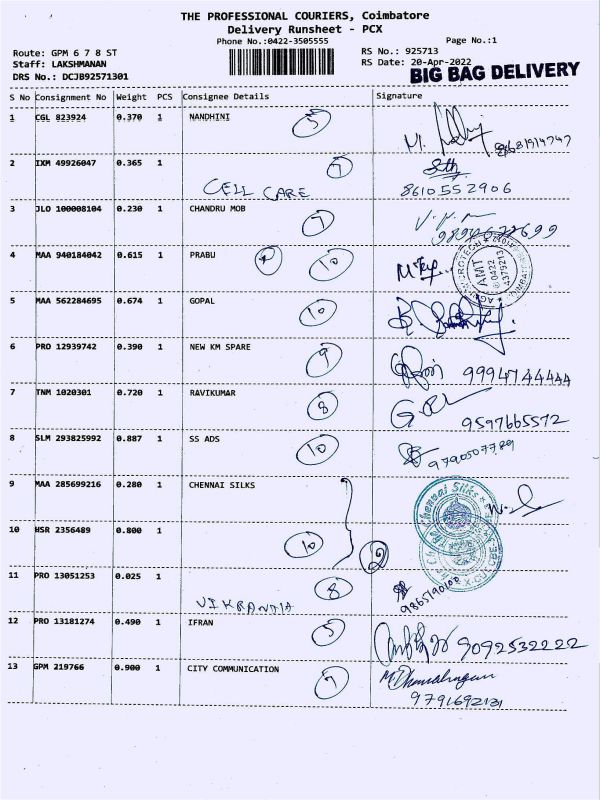 THE PROFESSIONAL COURIERS, Coimbatore
Delivery Runsheet - PCX
Phone No.:0422-3505555
Page No.:1
Route: GPM 6 7 8 ST
RS No.: 925713
Staff: LAKSHMANAN
RS Date: 20-Apr-2022
DRS No.: DCJB92571301
BIG BAG DELIVERY
S No Consignment No Weight PCS Consignee Details Signature
1 CGL 823924 0.370 1 NANDHINI 5
2 IXM 49926047 0.365 1 7
CELL CARE 8610552906
3 JLO 100008104 0.230 1 CHANDRU MOB 7
4 MAA 940184042 0.615 1 PRABU 10
AMT
0422
4379213
5 MAA 562284695 0.674 1 GOPAL 10
6 PRO 12939742 0.390 1 NEW KM SPARE 9
9994744444
7 TNM 1020301 0.720 1 RAVIKUMAR 8
9597665572
8 SLM 293825992 0.887 1 SS ADS 10
9790507789
9 MAA 285699216 0.280 1 CHENNAI SILKS
Chennai Silks
10 HSR 2356489 0.800 1 10 2
11 PRO 13051253 0.025 1 8
VIKRANTIA 9865190108
12 PRO 13181274 0.490 1 IFRAN 5
9092532222
13 GPM 219766 0.900 1 CITY COMMUNICATION 7
9791692131